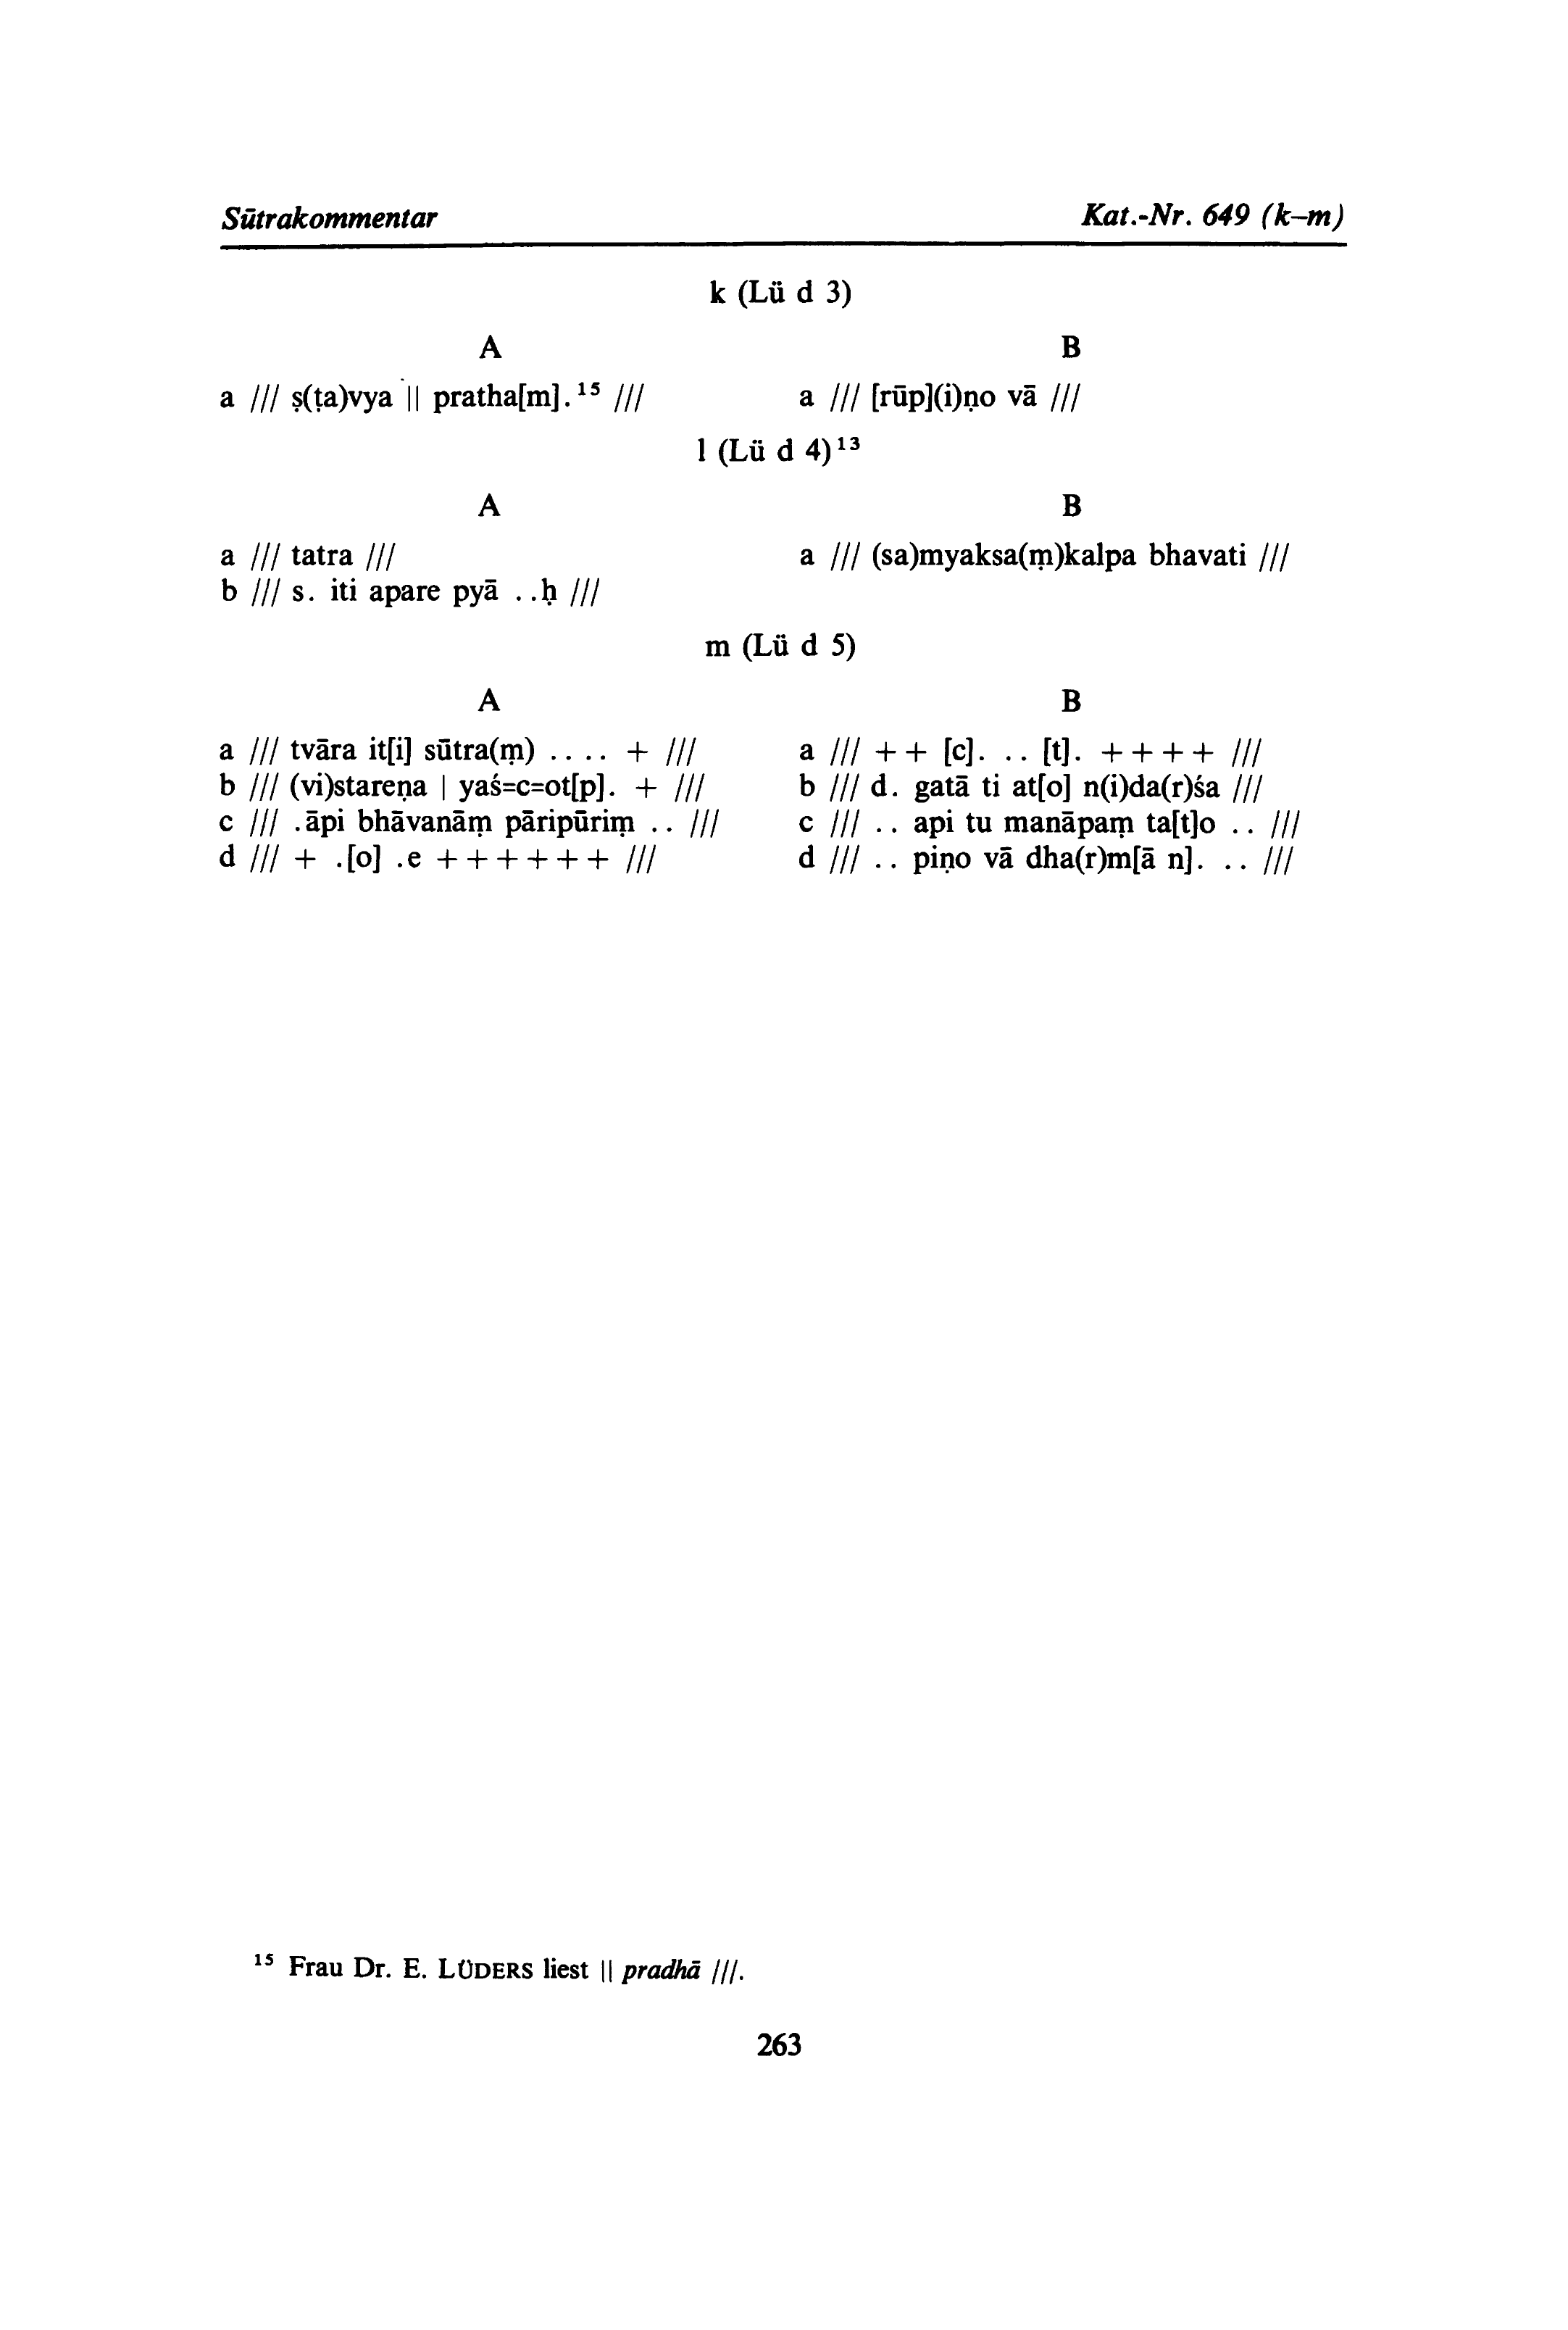 Sūtrakommentar Kat.-Nr. 649 (k–m)
k (Lü d 3)
A B
a /// ṣ(ṭa)vya || pratha[m]. ¹⁵ /// a /// [rūp](i)ṇo vā ///
l (Lü d 4)¹³
A B
a /// tatra /// a /// (sa)myaksa(ṃ)kalpa bhavati ///
b /// s. iti apare pyā . .ḥ ///
m (Lü d 5)
A B
a /// tvāra it[i] sūtra(ṃ) . . . . + /// a /// + + [c]. . . [t]. + + + + ///
b /// (vi)stareṇa | yaś=c=ot[p]. + /// b /// d. gatā ti at[o] n(i)da(r)śa ///
c /// .āpi bhāvanāṃ pāripūriṃ . . /// c /// . . api tu manāpaṃ ta[t]o . . ///
d /// + .[o] .e + + + + + + /// d /// . . piṇo vā dha(r)m[ā n]. . . ///
¹⁵ Frau Dr. E. LÜDERS liest || pradhā ///.
263